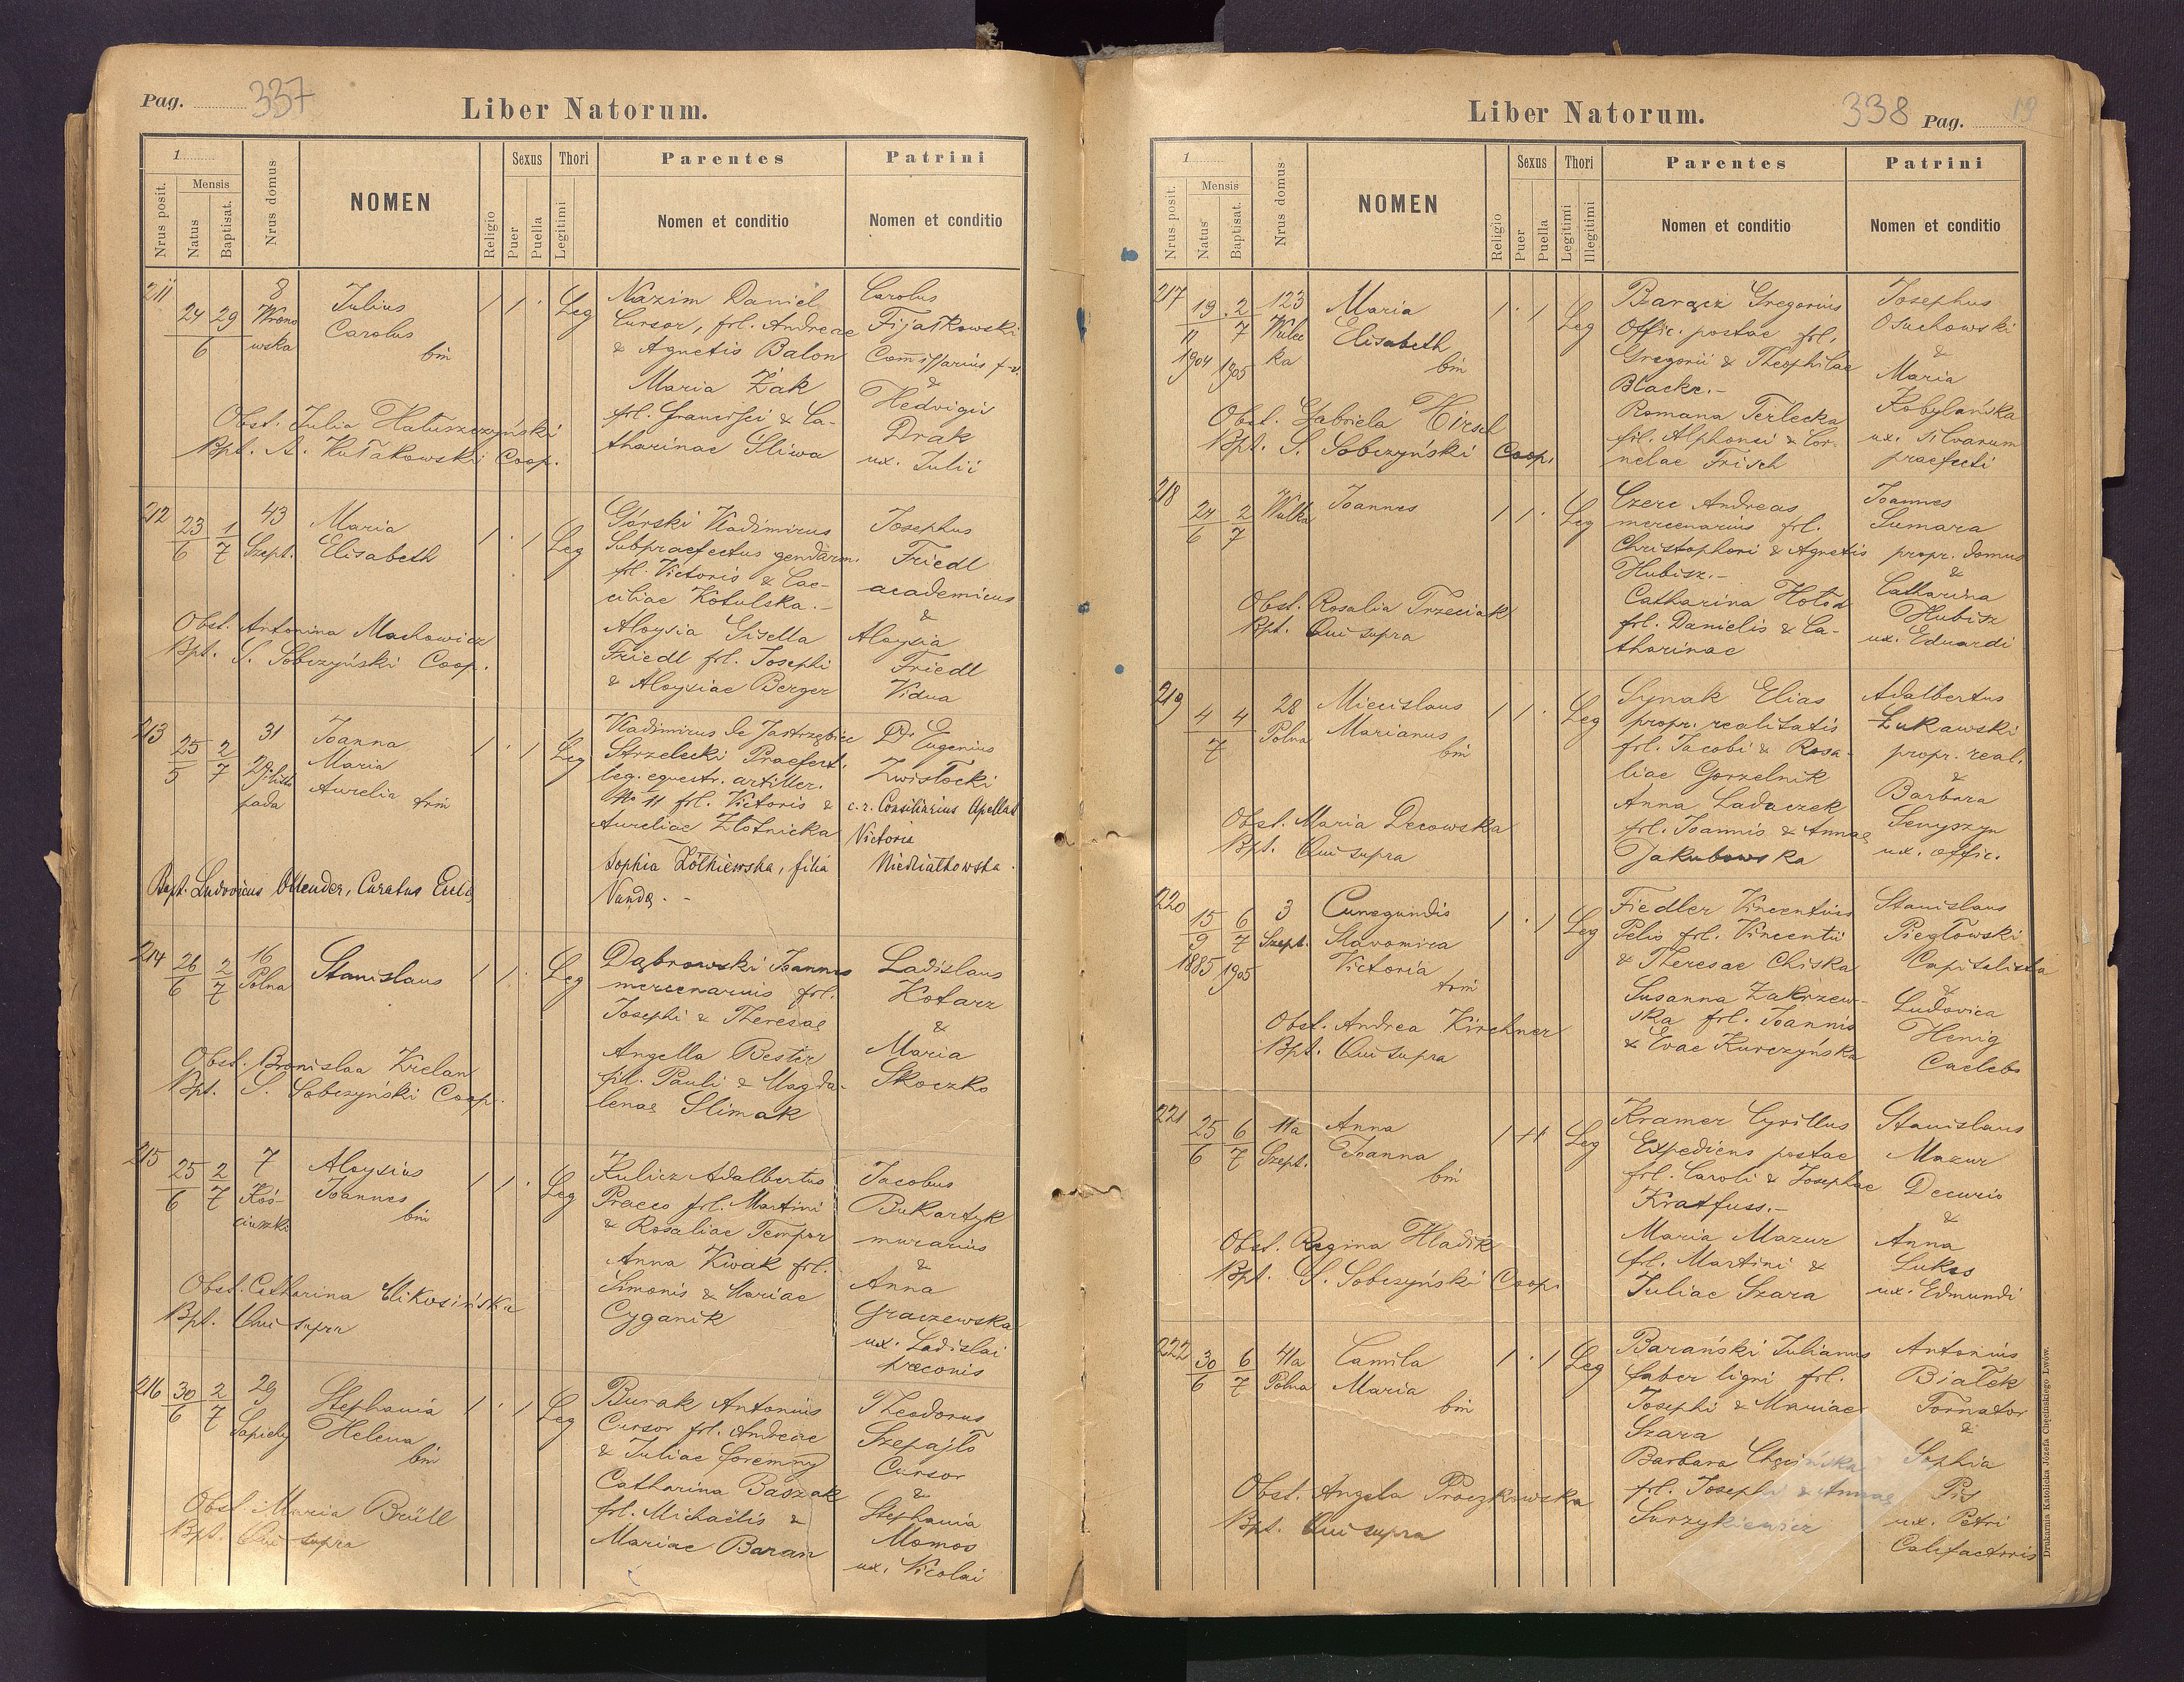 Pag. 337
Liber Natorum.
1
Nrus posit.
Mensis
Natus
Baptisat.
Nrus domus
NOMEN
Religio
Sexus
Puer
Puella
Thori
Legitimi
Parentes
Nomen et conditio
Patrini
Nomen et conditio
211
24 29
6
8
Wrono
wska
Julius
Carolus
bin
1 1 ·
Leg
Nazim Daniel
Cursor, frl. Andreae
& Agnetis Balon
Maria Żak
frl. Francisci & Ca-
tharinae Sliwa
Carolus
Fijałkowski
Comissarius
&
Hedvigis
Drak
ux. Julii
Obst. Julia Hałuszczyński
Bpt. A. Kułakowski Coop.
212
23 1
6 7
43
Szept.
Maria
Elisabeth
1 · 1
Leg
Górski Vladimirus
Subpraefectus gendarm.
frl. Victoris & Cae-
ciliae Kotulska.-
Aloysia Gisella
Friedl frl. Josephi
& Aloysiae Berger
Josephus
Friedl
academicus
&
Aloysia
Friedl
Vidua
Obst. Antonina Machowicz
Bpt. S. Sobczyński Coop.
213
25 2
5 7
31
29 listo
pada
Joanna
Maria
Aurelia trin
1 · 1
Leg
Vladimirus de Jastrzębiec
Strzelecki Praefect.
leg. equestr. artiller.
No 11 frl. Victoris &
Aureliae Złotnicka
Sophia Żółkiewska, filia
Vandę. -
Dr Eugenius
Zwisłocki
c. r. Consiliarius Apellat
Victoria
Niedziałkowska.
Bapt. Ludovicus Ollender, Curatus Eccl.
214
26 2
6 7
16
Polna
Stanislaus
1 1 ·
Leg
Dąbrowski Joannes
mercenarius frl.
Josephi & Theresae
Angella Bester
frl. Pauli & Magda-
lenae Slimak
Ladislaus
Kotarz
&
Maria
Skoczko
Obst. Bronislaa Krelan
Bpt. S. Sobczyński Coop.
215
25 2
6 7
7
Koś-
ciuszki
Aloysius
Joannes
bin
1 1 ·
Leg
Kulicz Adalbertus
Praeco frl. Martini
& Rosaliae Tempor
Anna Kwak frl.
Simonis & Mariae
Cyganik
Jacobus
Bukartyk
murarius
&
Anna
Graczewska
ux. Ladislai
praeconis
Obst. Catharina Mikosińska
Bpt. Qui supra
216
30 2
6 7
29
Sapiehy
Stephania
Helena
bin
1 · 1
Leg
Burak Antonius
Cursor frl. Andreae
& Juliae Foremny
Catharina Baszak
frl. Michaëlis &
Mariae Baran
Theodorus
Szepajło
Cursor
&
Stephania
Momos
ux. Nicolai
Obst. Maria Brüll
Bpt. Qui supra
Liber Natorum.
338 Pag. 19
1
Nrus posit.
Mensis
Natus
Baptisat.
Nrus domus
NOMEN
Religio
Sexus
Puer
Puella
Thori
Legitimi
Illegitimi
Parentes
Nomen et conditio
Patrini
Nomen et conditio
217
19 2
11 7
1904 1905
123
Wulec
ka
Maria
Elisabeth
bin
1 · 1
Leg
Barącz Gregorius
Offic. postae frl.
Gregorii & Theophilae
Blacke.-
Romana Terlecka
frl. Alphonsi & Cor-
nelae Frisch
Josephus
Osuchowski
&
Maria
Kobylańska
ux. silvarum
praefecti
Obst. Gabriela Hirsch
Bpt. S. Sobczyński Coop.
218
24 2
6 7
Wulka
Joannes
1 1 ·
Leg
Czerc Andreas
mercenarius frl.
Christophori & Agnetis
Hubisz.-
Catharina Hołod
frl. Danielis & Ca-
tharinae
Joannes
Sumara
propr. domus
&
Catharina
Hubisz
ux. Eduardi
Obst. Rosalia Trzeciak
Bpt. Qui supra
219
4 4
7
28
Polna
Miecislaus
Marianus
bin
1 1 ·
Leg
Synak Elias
propr. realitatis
frl. Jacobi & Rosa-
liae Gorzelnik
Anna Ladaczek
frl. Joannis & Annae
Jakubowska
Adalbertus
Łukawski
propr. real.
&
Barbara
Senyszyn
ux. offic.
Obst. Maria Decowska
Bpt. Qui supra
220
15 6
9 7
1885 1905
3
Szept.
Cunegundis
Slavomira
Victoria
trin
1 · 1
Leg
Fiedler Vincentius
Pelio frl. Vincentii
& Theresae Chiska
Susanna Zakrzew-
ska frl. Joannis
& Evae Kurczyńska
Stanislaus
Piegłowski
Capitalista
&
Ludovica
Henig
Caelebs
Obst. Andrea Kirchner
Bpt. Qui supra
221
25 6
6 7
11a
Szept.
Anna
Joanna
bin
Leg
Kramer Cyrillus
Expediens postae
frl. Caroli & Josephae
Kratfuss.-
Maria Mazur
frl. Martini &
Juliae Szara
Stanislaus
Mazur
Decurio
&
Anna
Lukas
ux. Edmundi
Obst. Regina Hladik
Bpt. S. Sobczyński Coop.
222
30 6
6 7
41a
Polna
Camila
Maria
bin
1 · 1
Leg
Barański Julianus
faber ligni frl.
Josephi & Mariae
Szara
Barbara Chęcińska
frl. Josephi & Annae
Surzykiewicz
Antonius
Białek
Tornator
&
Sophia
Pis
ux. Petri
Calefactoris
Obst. Angela Proczkowska
Bpt. Qui supra
Drukarnia Katolicka Józefa Chęcińskiego Lwów.